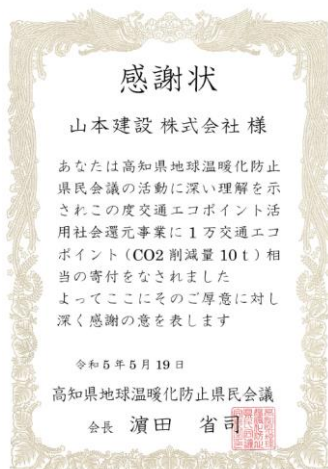 感謝状
山本建設 株式会社 様
あなたは高知県地球温暖化防止
県民会議の活動に深い理解を示
されこの度交通エコポイント活
用社会還元事業に1万交通エコ
ポイント(CO2削減量10t)相
当の寄付をなされました
よってここにそのご厚意に対し
深く感謝の意を表します
令和5年5月19日
高知県地球温暖化防止県民会議
会長 濵田 省司